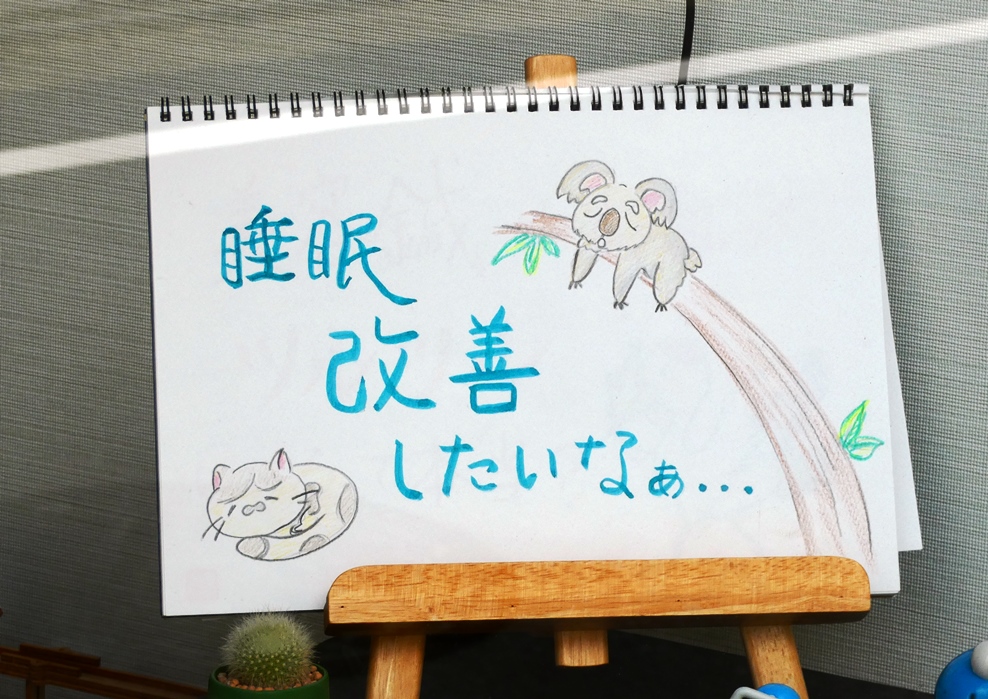 睡眠
改善
したいなぁ...